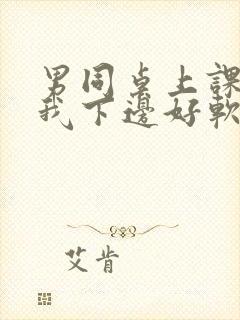 男同桌上課
我下邊好軟
艾肯